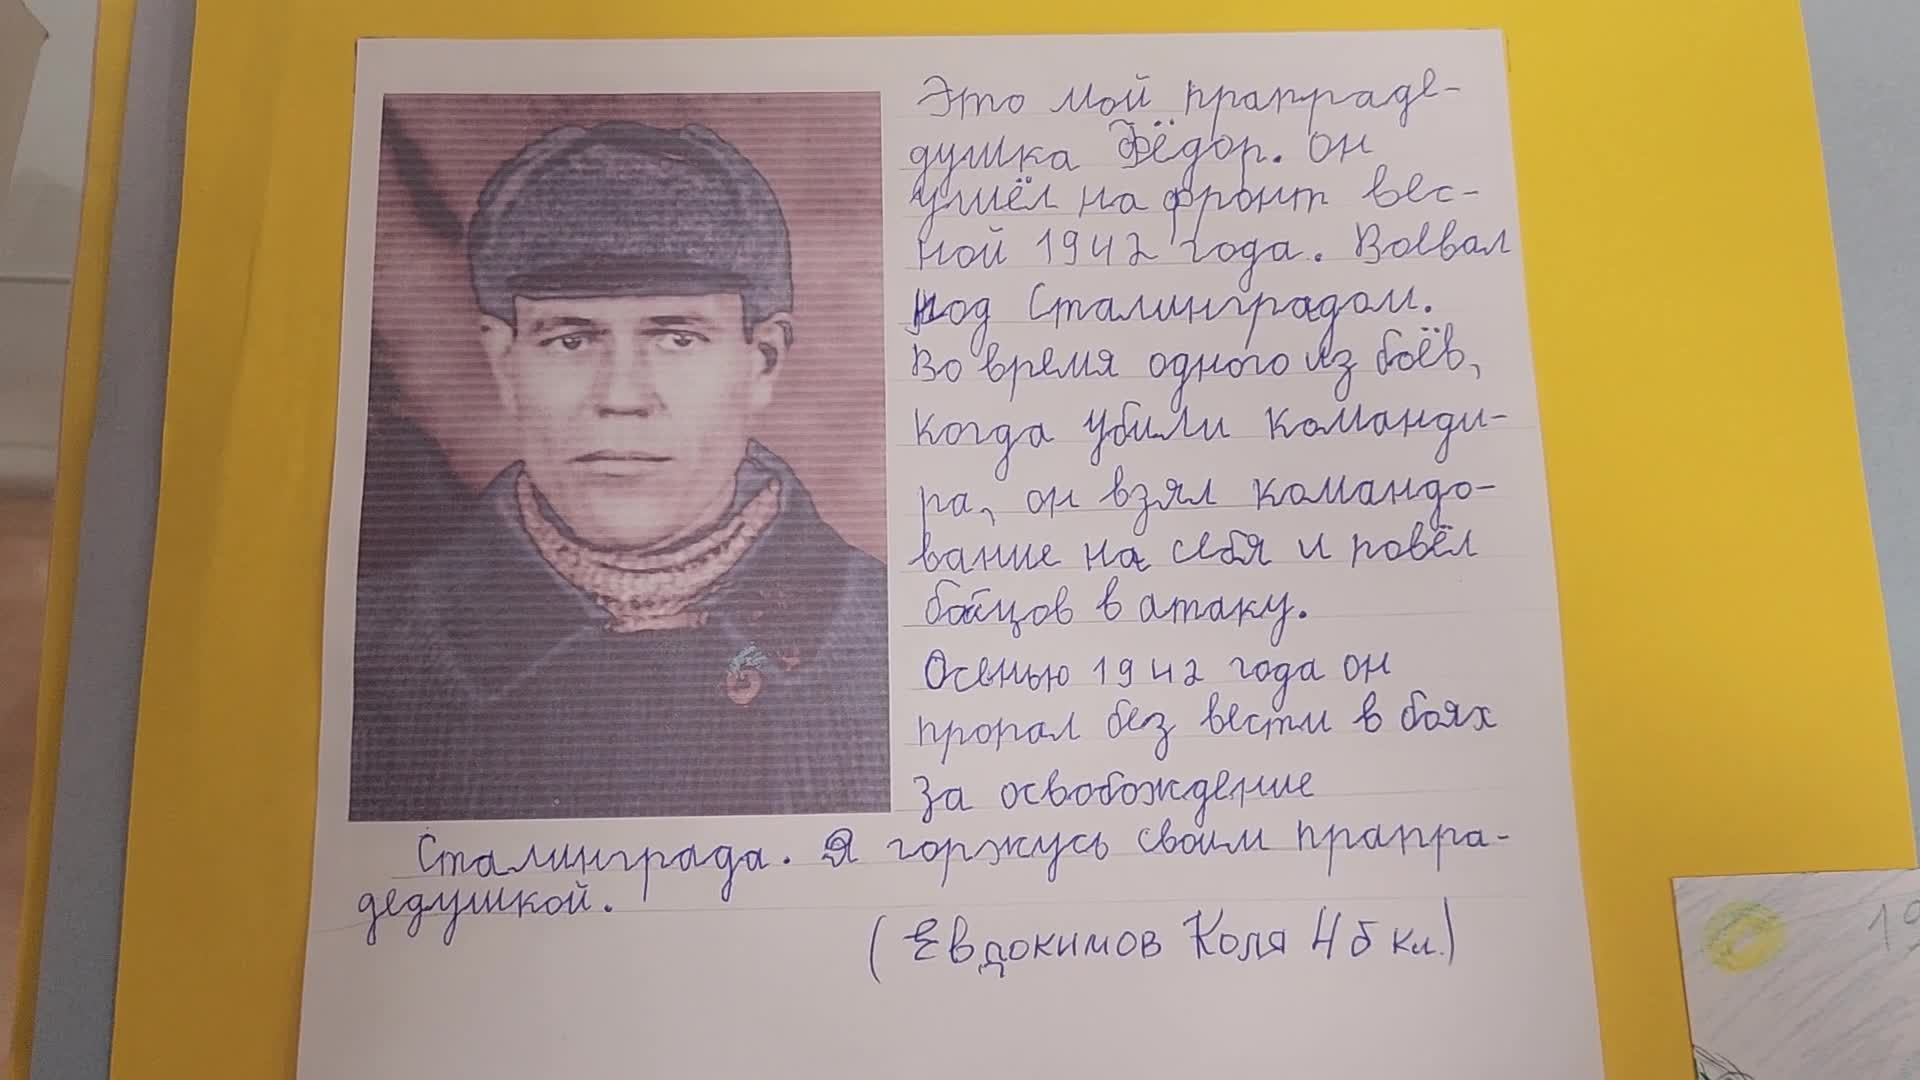 Это мой прапраде-
душка Фёдор. Он
ушёл на фронт вес-
ной 1942 года. Воевал
под Сталинградом.
Во время одного из боёв,
когда убили команди-
ра, он взял командо-
вание на себя и повёл
бойцов в атаку.
Осенью 1942 года он
пропал без вести в боях
за освобождение
Сталинграда. Я горжусь своим прапра-
дедушкой.
(Евдокимов Коля 4 б кл.)
19